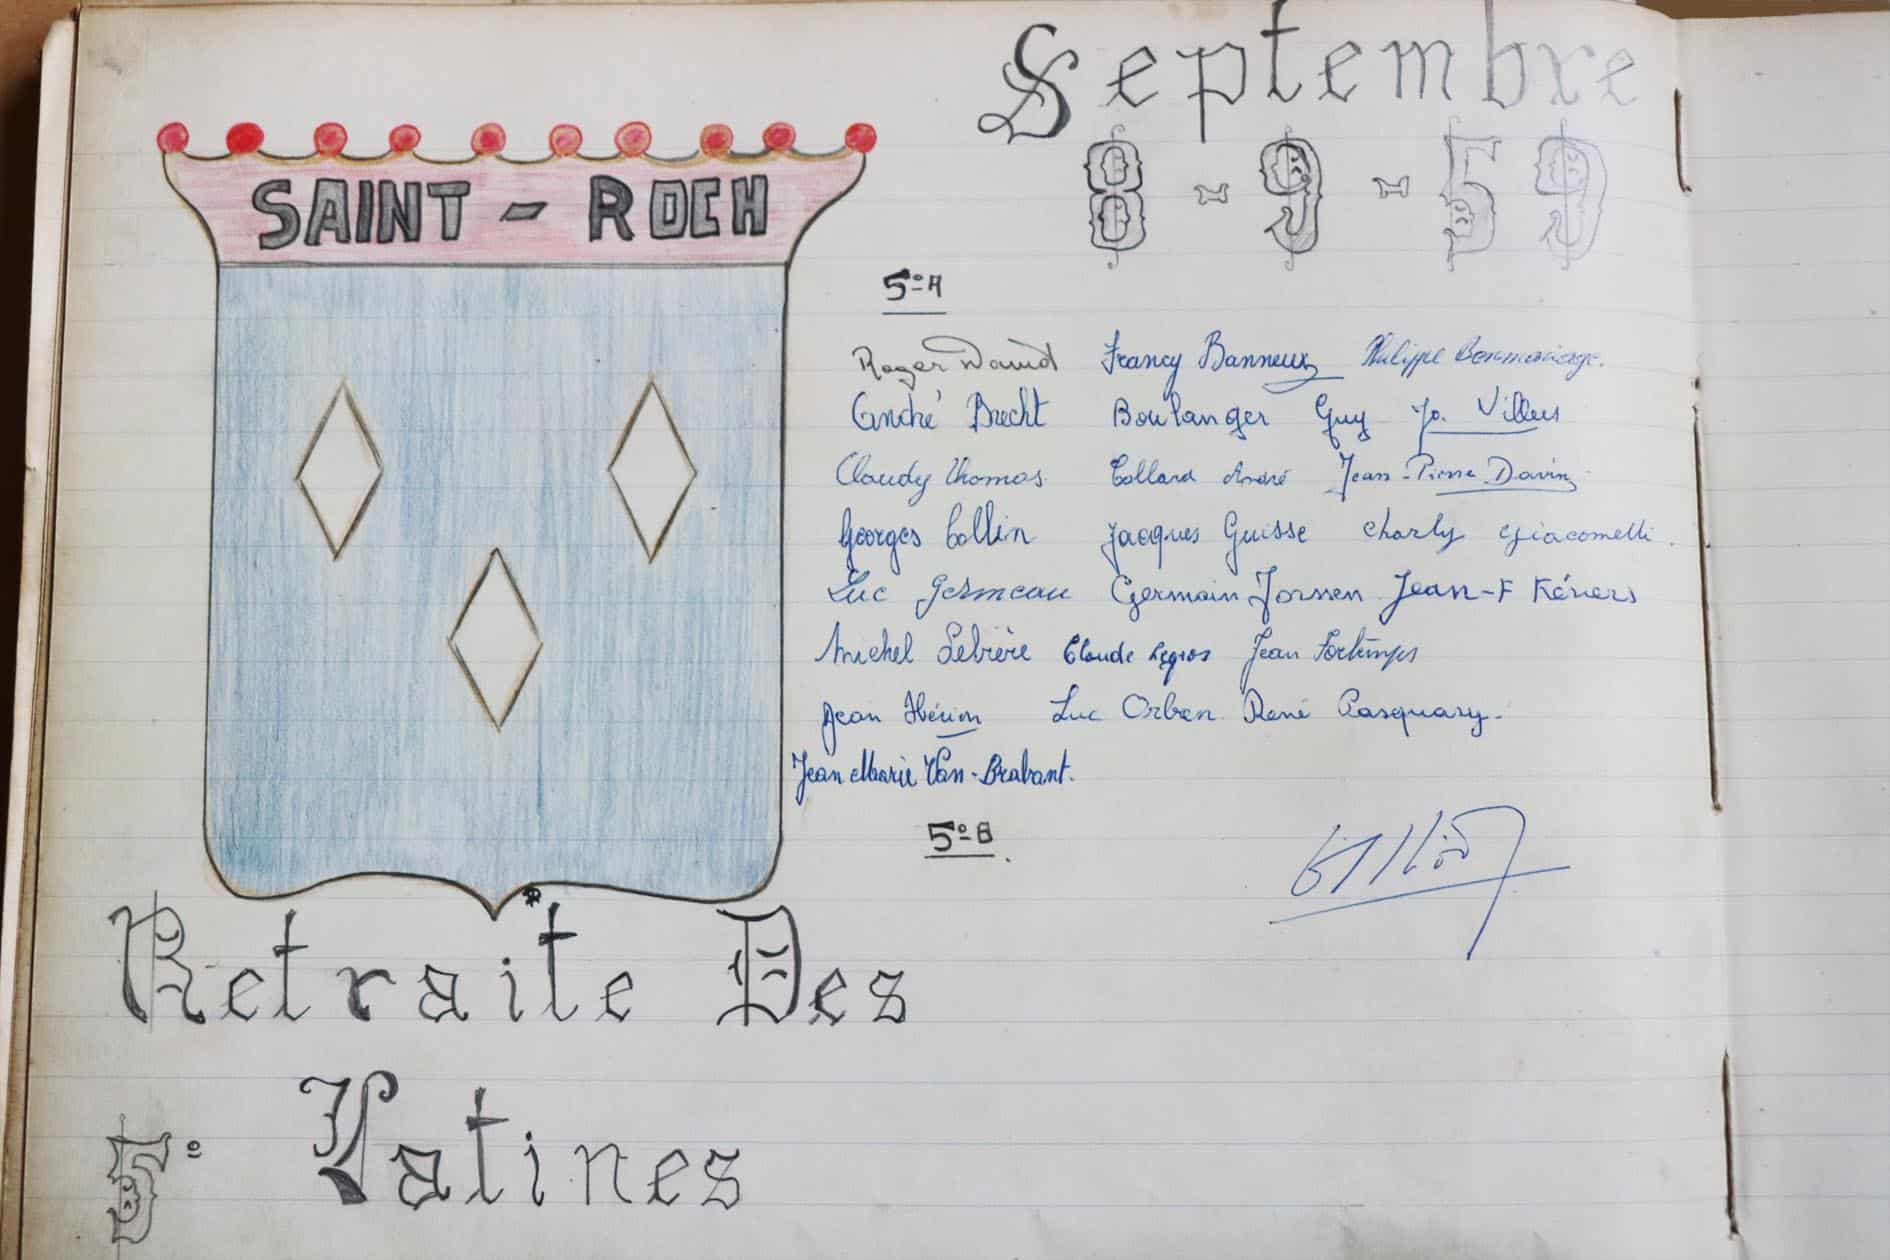 Septembre
8-9-59
SAINT-ROCH
5º A
Roger David Francy Banneux Philippe Bonmariage.
André Brecht Boulanger Guy Jo. Villers
Claudy Thomas Collard André Jean-Pierre Davin
Georges Collin Jacques Guisse Charly Giacomelli.
Luc Germeau Germain Jorssen Jean-F Kévers
Michel Lebière Claude Legros Jean Fortemps
Jean Hérion Luc Orban René Pasquasy.
Jean Marie Van-Brabant.
5º B.
Retraite Des
5º Latines